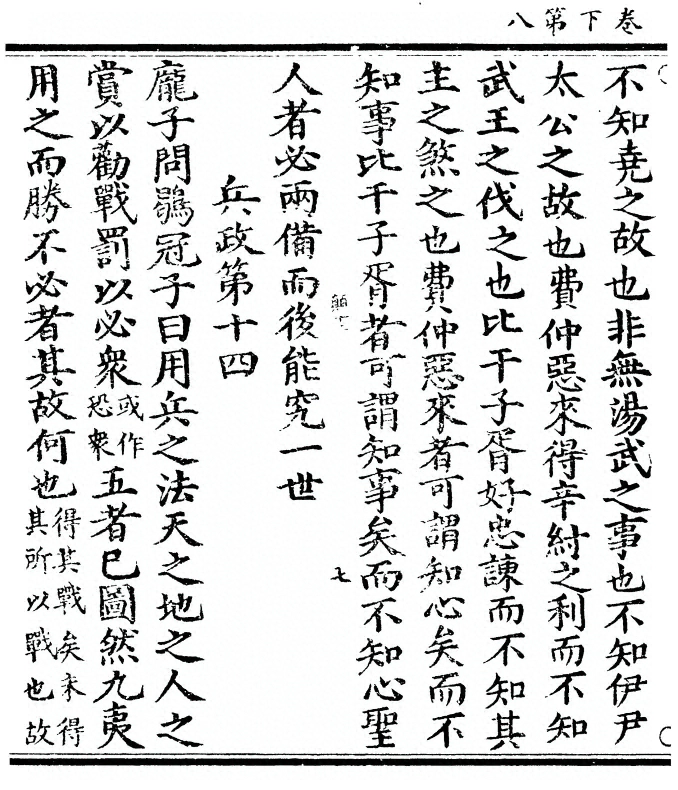 卷下第八
不知堯之故也非無湯武之事也不知伊尹
太公之故也費仲惡來得辛紂之利而不知
武王之伐之也比干子胥好忠諫而不知其
主之煞之也費仲惡來者可謂知心矣而不
知事比干子胥者可謂知事矣而不知心聖
七
人者必兩備而後能究一世
兵政第十四
龐子問鶡冠子曰用兵之法天之地之人之
賞以勸戰罰以必衆或作恐衆五者已圖然九夷
用之而勝不必者其故何也得其戰矣未得其所以戰也故